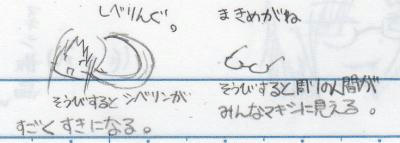 しべりんぐ。
そうびすると シベリンが
すごく すきになる。
まきめがね
そうびすると周りの人間が
みんなマキシに見える。